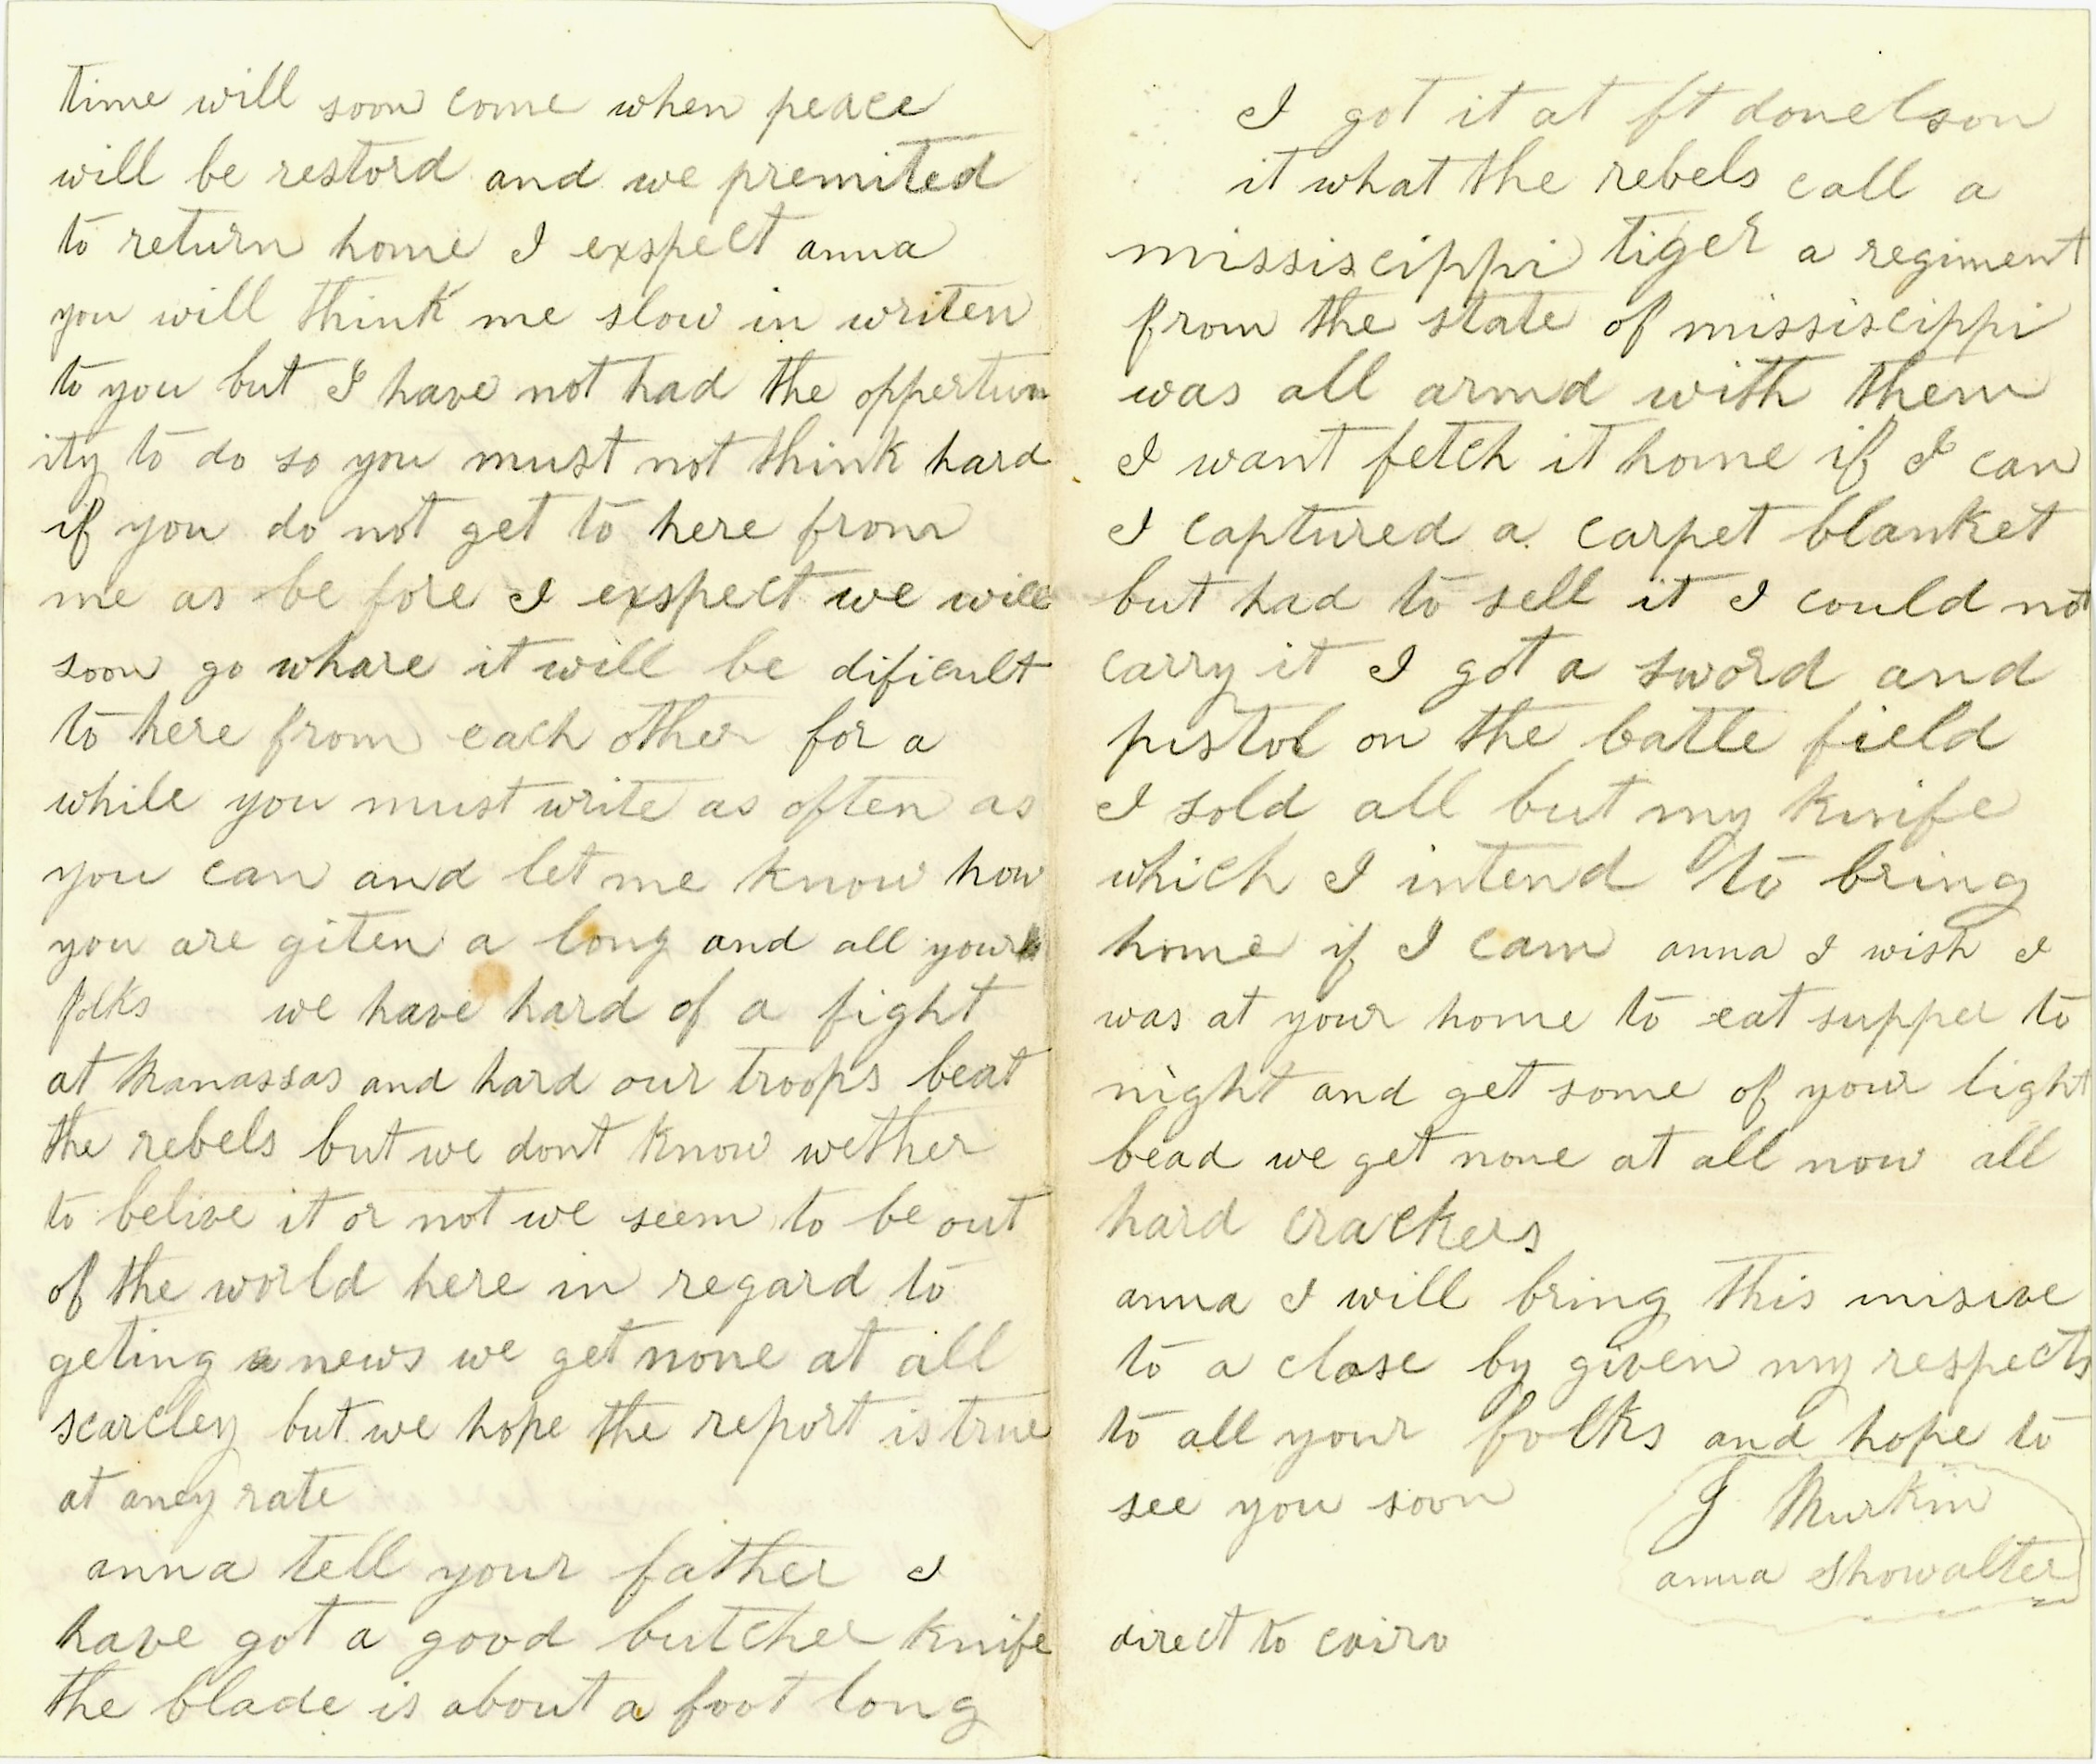 time will soon come when peace
will be restord and we premited
to return home I exspect anna
you will think me slow in writen
to you but I have not had the oppertun
ity to do so you must not think hard
if you do not get to here from
me as be fore I exspect we will
soon go whare it will be dificult
to here from each other for a
while you must write as often as
you can and let me know how
you are giten a long and all your
folks we have hard of a fight
at Manassas and hard our troops beat
the rebels but we dont know wether
to belive it or not we seem to be out
of the world here in regard to
geting news we get none at all
scarcley but we hope the report is true
at aney rate
anna tell your father I
have got a good butcher knife
the blade is about a foot long
I got it at ft donelson
it what the rebels call a
missiscippi tiger a regiment
from the state of missiscippi
was all armd with them
I want fetch it home if I can
I captured a carpet blanket
but had to sell it I could not
carry it I got a sword and
pistol on the batle field
I sold all but my knife
which I intend to bring
home if I cam anna I wish I
was at your home to eat supper to
night and get some of your light
bead we get none at all now all
hard crackers
anna I will bring this misive
to a close by given my respects
to all your folks and hope to
see you soon
J Murkin
anna Showalter
direct to cairo